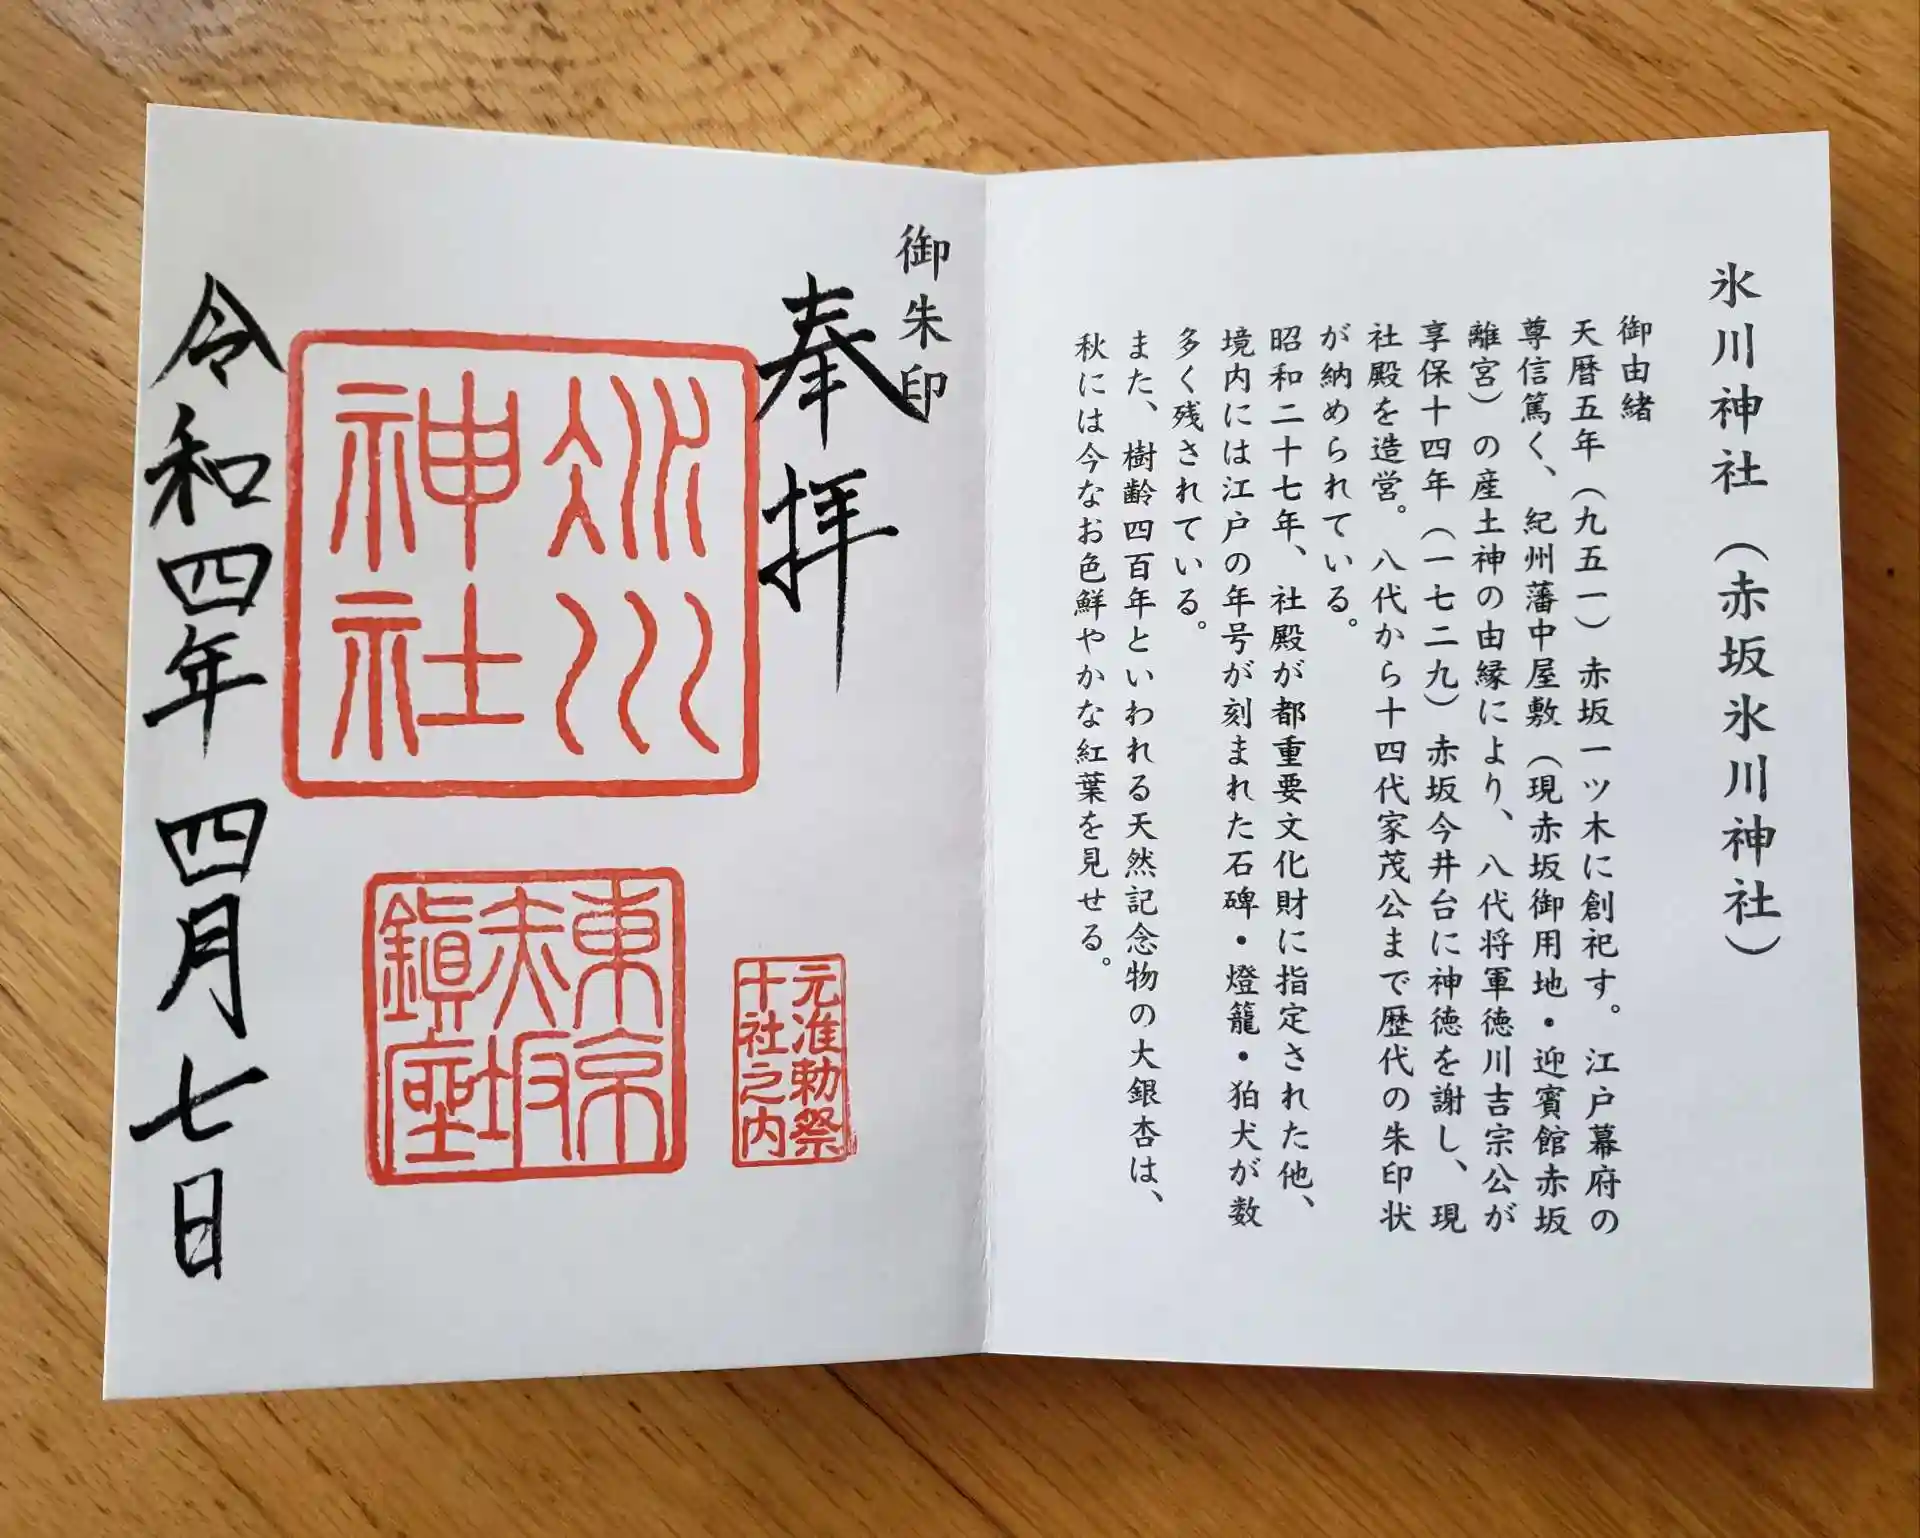 氷川神社（赤坂氷川神社）
御由緒
天暦五年（九五一）赤坂一ツ木に創祀す。江戸幕府の
尊信篤く、紀州藩中屋敷（現赤坂御用地・迎賓館赤坂
離宮）の産土神の由縁により、八代将軍徳川吉宗公が
享保十四年（一七二九）赤坂今井台に神徳を謝し、現
社殿を造営。八代から十四代家茂公まで歴代の朱印状
が納められている。
昭和二十七年、社殿が都重要文化財に指定された他、
境内には江戸の年号が刻まれた石碑・燈籠・狛犬が数
多く残されている。
また、樹齢四百年といわれる天然記念物の大銀杏は、
秋には今なお色鮮やかな紅葉を見せる。
御朱印
奉拝
氷川
神社
元准勅祭
十社之内
東京
赤坂
鎭座
令和四年四月七日